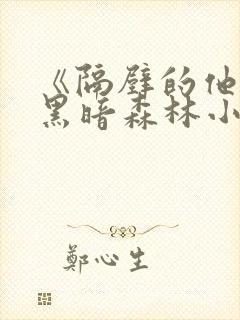 《隔壁的他
黑暗森林小
鄭心生